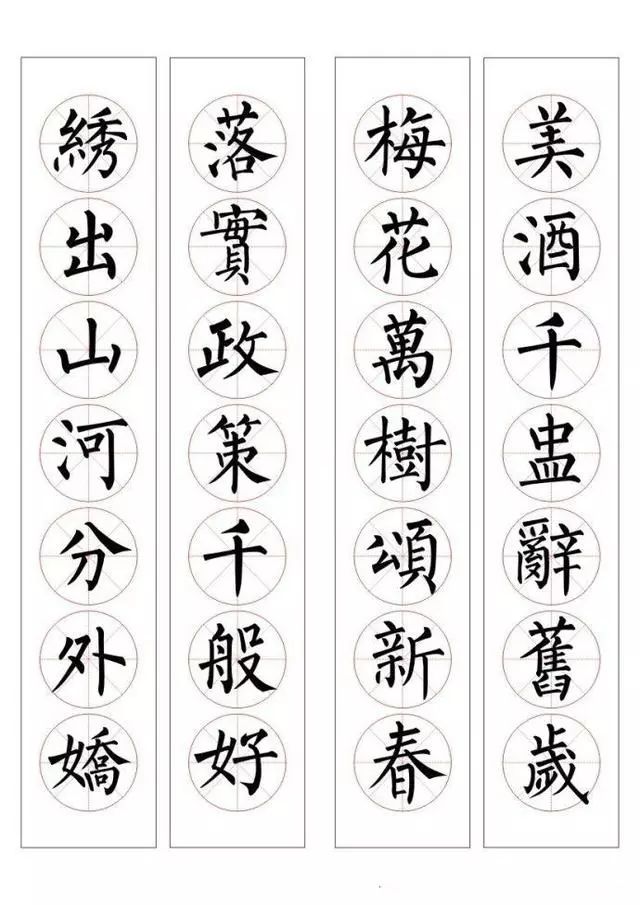 美酒千盅辭舊歲
梅花萬樹頌新春
落實政策千般好
綉出山河分外嬌